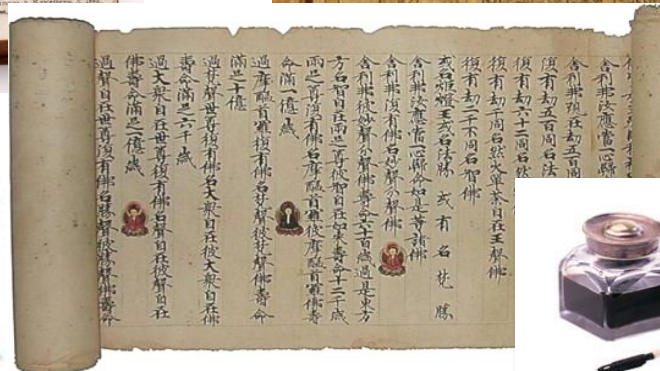 舍利弗汝應當一心歸
舍利弗現在劫五百同
復有劫五百同名法
復有劫六十二同名
復有劫一千同名然火單荼自在王聲佛
復有劫二千不同名智佛
或名炬燈王或名法勝 或有名梵勝
舍利弗汝應當一心歸命如是等諸佛
舍利弗復有佛名妙聲分聲佛
舍利弗彼妙聲分聲佛壽命六十百歲過是東方
方名智自在兩足尊彼智自在如來壽命十二千歲
兩足尊復有佛名摩醯首羅彼摩醯首羅佛壽
命滿一億歲
過摩醯首羅復有佛名梵聲彼梵聲佛壽命
滿足十億
過梵聲世尊復有佛名大衆自在彼大衆自在佛
壽命滿足六千歲
過大衆自在世尊復有佛名聲自在彼聲自在
佛壽命滿足一億歲
過聲自在世尊復有佛名勝聲彼勝聲佛壽命